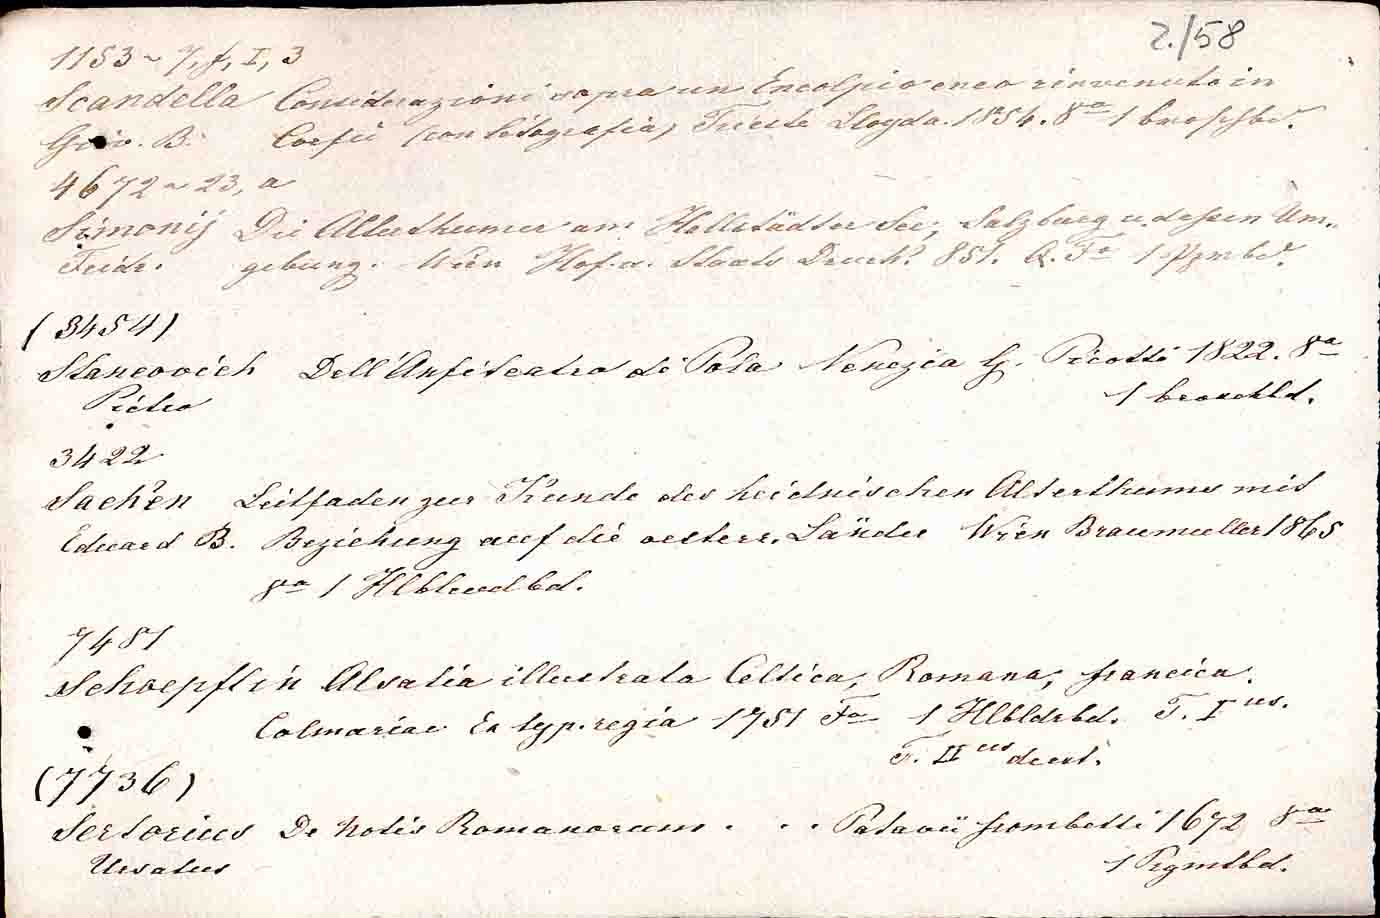 2./58
1153~7, f, I, 3
Scandella Considerazioni sopra un Encolpio eneo rinvenuto in
Giov. B. Corfù (con litografia) Trieste Lloyd a. 1854. 8º 1 broschbd.
4672~23, a
Simonij Die Alterthumer am Hallstädter See, Salzburg u. dessen Um-
Feidr. gebung. Wien Hof. u. Staats Druck. 851. Q. Fº 1 bd.
(3454)
Stancovich Dell'Anfiteatro di Pola Venezia G. Picotti 1822. 8º
Pietro 1 broschbd.
3422
Sacken Leitfaden zur Kunde des heidnischen Alterthums mit
Eduard B. Beziehung auf die oesterr. Länder Wien Braumuller 1865
8º 1 Hlblwdbd.
7481
Schoepflin Alsatia illustrata Celtica, Romana, francica.
Colmariae Ex typ. regia 1751 Fº 1 Hlbldrbd. T. I us.
T. II us deest.
(7736)
Sertorius De Notis Romanorum . . . Patavii frombotti 1672 8º
Ursatus 1 Prgmtbd.